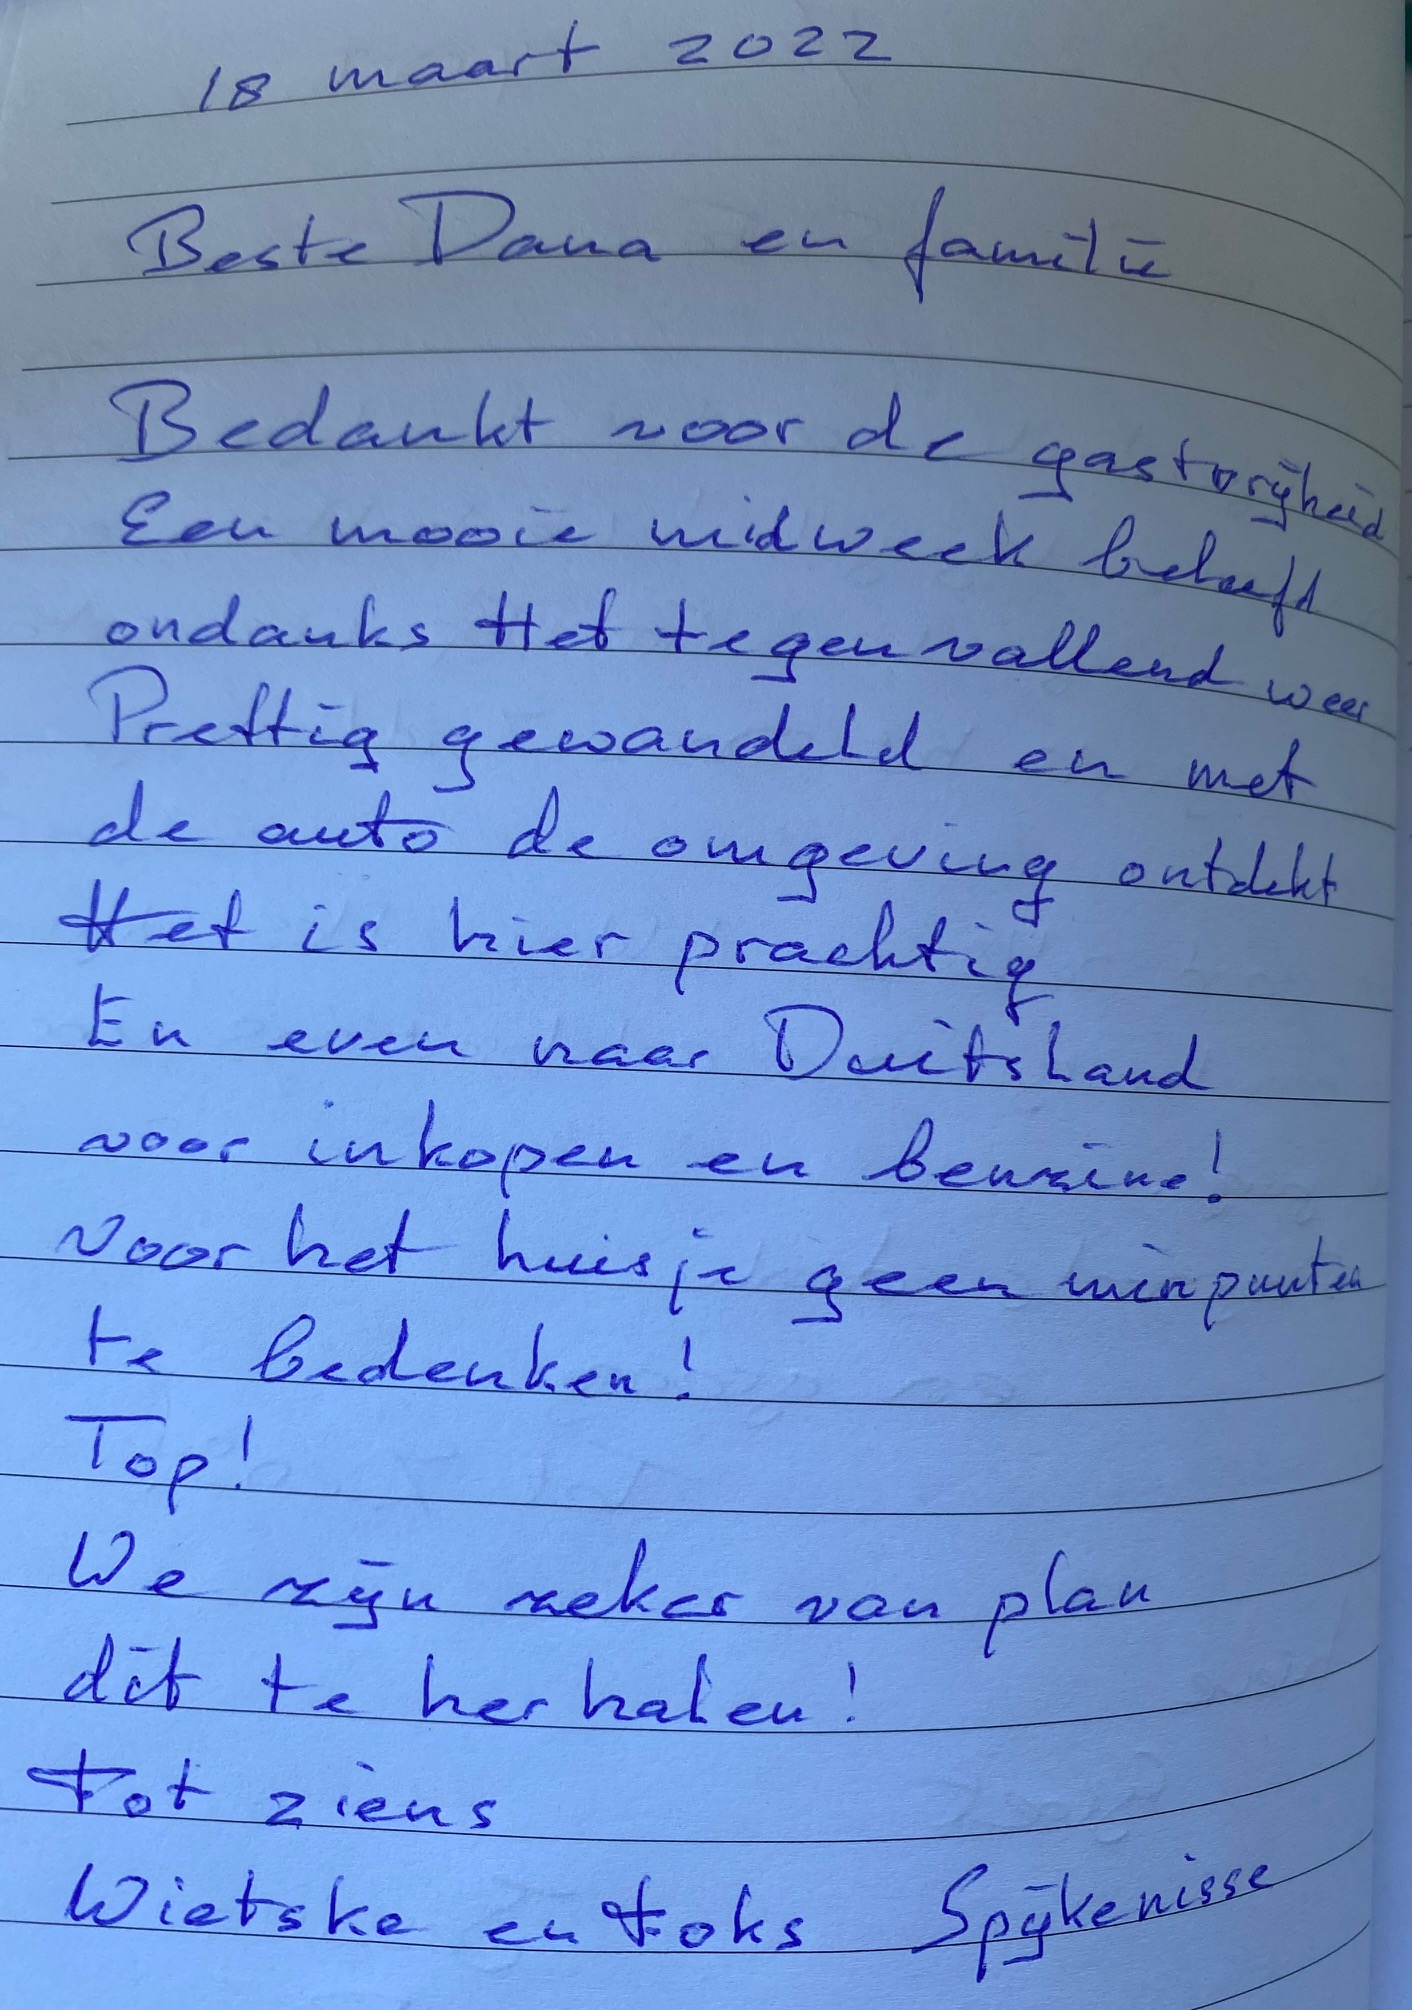 18 maart 2022
Beste Dana en familie
Bedankt voor de gastvrijheid
Een mooie midweek beleefd
ondanks Het tegenvallend weer
Prettig gewandeld en met
de auto de omgeving ontdekt
Het is hier prachtig
En even naar Duitsland
voor inkopen en benzine!
Voor het huisje geen minpunten
te bedenken!
Top!
We zijn zeker van plan
dit te herhalen!
Tot ziens
Wietske en Foks Spijkenisse